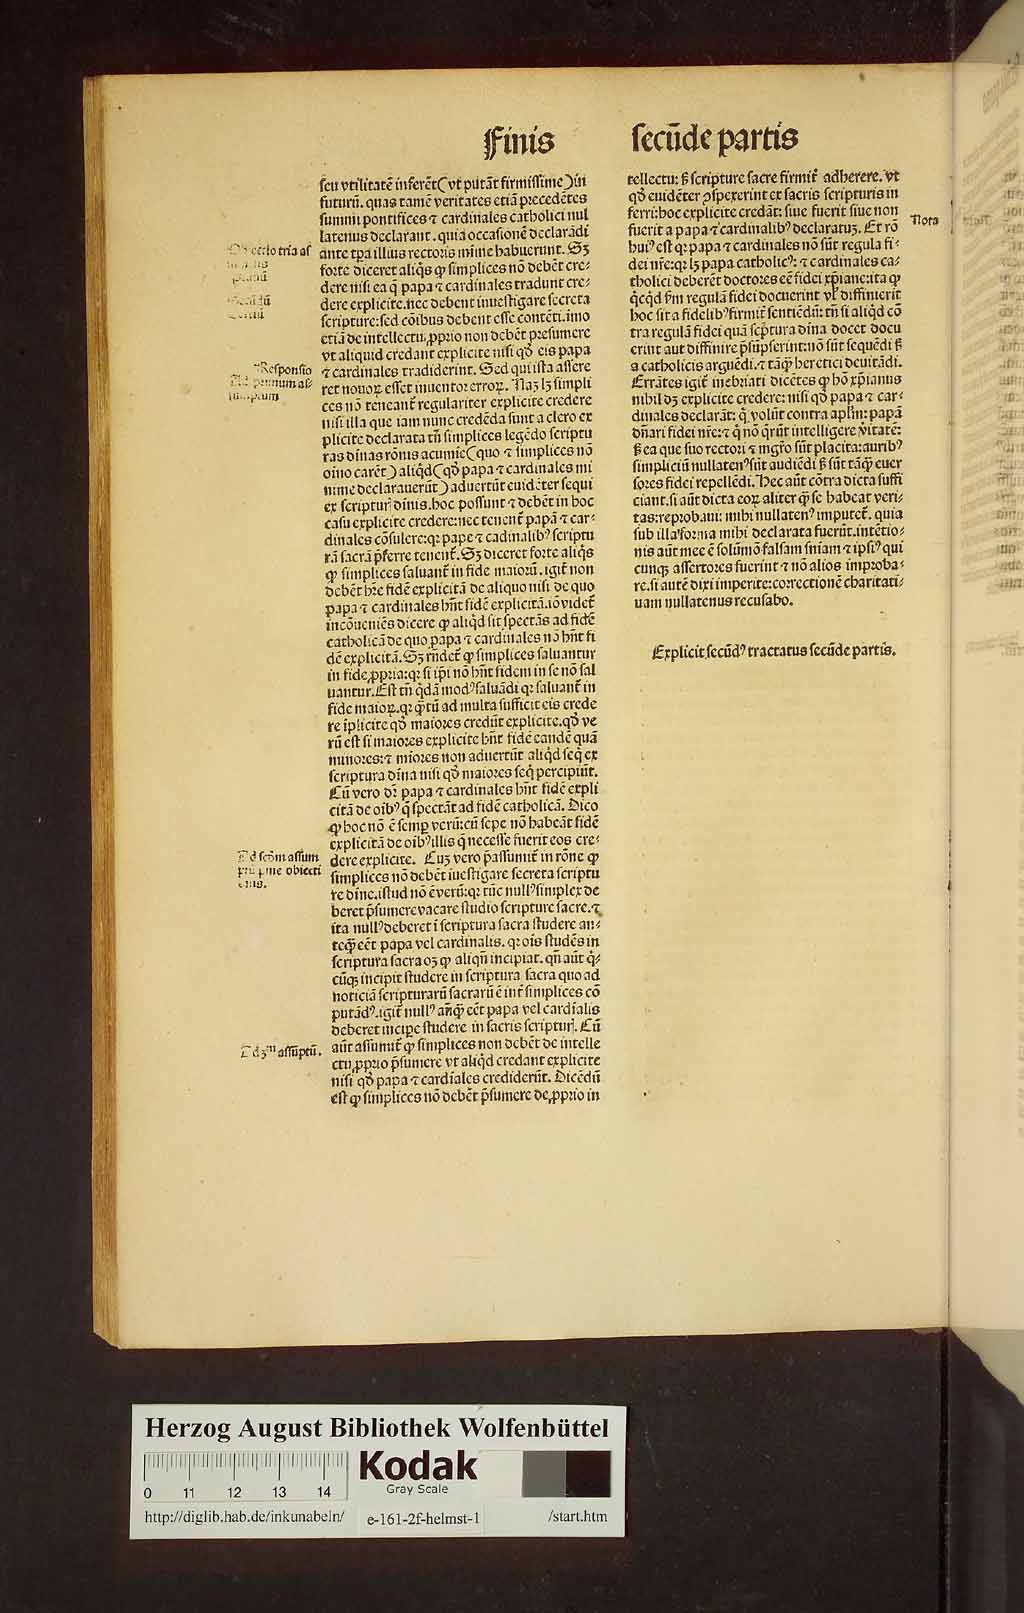 Finis secūde partis
seu vtilitatē inferēt (vt putāt firmissime) in
futurū. quas tamē veritates etiā precedētes
summi pontifices ⁊ cardinales catholici nul
latenus declarant. quia occasionē declarādi
ante tp̄a illius rectoris mīme habuerunt. Sꝫ
forte diceret aliq̄s ꝙ simplices nō debēt cre⸗
dere nisi ea q̄ papa ⁊ cardinales tradunt cre⸗
dere explicite. nec debent inuestigare secreta
scripture: sed cōibus debent esse contēti. imo
etiā de intellectu ꝓprio non debēt presumere
vt aliquid credant explicite nisi qd̄ eis papa
⁊ cardinales tradiderint. Sed qui ista assere
ret nouoꝝ esset inuentor erroꝝ. Naꝫ lꝫ simpli
ces nō teneant̄ regulariter explicite credere
nisi illa que iam nunc credēda sunt a clero ex
plicite declarata tn̄ simplices legēdo scriptu
ras diuinas rōnis acumīe (quo ⁊ simplices nō
oīno carēt) aliq̄d (qd̄ papa ⁊ cardinales mi
nime declarauerūt) aduertūt euidēter sequi
ex scripturꝭ dīnis. hoc possunt ⁊ debēt in hoc
casu explicite credere: nec tenent̄ papā ⁊ car⸗
dinales cōsulere: qꝛ pape ⁊ cadinalibꝰ scriptu
rā sacrā p̄ferre tenent̄. Sꝫ diceret forte aliq̄s
ꝙ simplices saluant̄ in fide maiorū. igit̄ non
debēt hr̄e fidē explicitā de aliquo nisi de quo
papa ⁊ cardinales hn̄t fidē explicitā. iō videt̄
incōueniēs dicere ꝙ aliq̄d sit spectās ad fidē
catholicā de quo papa ⁊ cardinales nō hn̄t fi
dē explicitā. Sꝫ rn̄det̄ ꝙ simplices saluantur
in fide ꝓpria: qꝛ si ip̄i nō hn̄t fidem in se nō sal
uantur. Est tn̄ q̄dā modꝰ saluādi qꝛ saluant̄ in
fide maioꝝ. qꝛ q̄tū ad multa sufficit eis crede
re īplicite qd̄ maiores credūt explicite. qd̄ ve
rū est si maiores explicite hn̄t fidē eandē quā
minores: ⁊ miores non aduertūt aliq̄d seq̄ ex
scriptura dīna nisi qd̄ maiores seq̄ percipiūt.
Cū vero dꝛ papa ⁊ cardinales hn̄t fidē expli
citā de oībꝰ q̄ spectāt ad fidē catholicā. Dico
ꝙ hoc nō ē semꝑ verū: cū sepe nō habeāt fidē
explicitā de oībꝰ illis q̄ necesse fuerit eos cre⸗
dere explicite. Cuꝫ vero p̄assumit̄ in rōne ꝙ
simplices nō debēt iuestigare secreta scriptu
re dīne. istud nō ē verū: qꝛ tūc nullꝰ simplex de
beret p̄sumere vacare studio scripture sacre. ⁊
ita nullꝰ deberet ī scriptura sacra studere an⸗
teq̄ eēt papa vel cardinalis. qꝛ oīs studēs in
scriptura sacra oꝫ ꝙ aliqn̄ incipiat. qn̄ aūt q̄⸗
cūqꝫ incipit studere in scriptura sacra quo ad
noticiā scripturarū sacrarū ē int̄ simplices cō
putādꝰ. igit̄ nullꝰ an̄q̄ eēt papa vel cardīalis
deberet incipe studere in sacris scripturꝭ. Cū
aūt assumit̄ ꝙ simplices non debēt de intelle
ctu ꝓprio p̄sumere vt aliq̄d credant explicite
nisi qd̄ papa ⁊ cardīales crediderūt. Dicēdū
est ꝙ simplices nō debēt p̄sumere de ꝓprio in
tellectu: sꝫ scripture sacre firmit̄ adherere. vt
qd̄ euidēter ꝓspexerint ex sacris scripturis in
ferri: hoc explicite credāt: siue fuerit siue non
fuerit a papa ⁊ cardinalibꝰ declaratuꝫ. Et rō
huiꝰ est qꝛ papa ⁊ cardinales nō sūt regula fi⸗
dei nr̄e: qꝛ lꝫ papa catholicꝰ: ⁊ cardinales ca⸗
tholici deberēt doctores eē fidei xp̄iane: ita ꝙ
q̄cq̄d s̄m regulā fidei docuerint vl̓ diffinierit
hoc sit a fidelibꝰ firmit̄ sentiēdū: tn̄ si aliq̄d cō
tra regulā fidei quā scp̄tura dīna docet docu
erint aut diffinire p̄sūpserint: nō sūt sequēdi sꝫ
a catholicis arguēdi. ⁊ tāq̄ heretici deuitādi.
Errātes igit̄ inebriati dicētes ꝙ hō xp̄ianus
nihil dꝫ explicite credere: nisi qd̄ papa ⁊ car⸗
dinales declarāt: q̄ volūt contra apl̄m: papā
dn̄ari fidei nr̄e: ⁊ q̄ nō q̄rūt intelligere v̄itatē:
sꝫ ea que suo rectori ⁊ mgr̄o sūt placita: auribꝰ
simpliciū nullatenꝰ sūt audiēdi sꝫ sūt tāq̄ euer
sores fidei repellēdi. Hec aūt cōtra dicta suffi
ciant. si aūt dicta eoꝝ aliter q̄ se habeat veri⸗
tas: reprobaui: mihi nullatenꝰ imputet̄. quia
sub illa forma mihi declarata fuerūt. intētio⸗
nis aūt mee ē solūmō falsam sn̄iam ⁊ ipsiꝰ qui
cunqꝫ assertores fuerint ⁊ nō alios improba⸗
re. si autē dixi imperite: correctionē charitati⸗
uam nullatenus recusabo.
Explicit secūdꝰ tractatus secūde partis.
Nota
Responsio
Ad primum as⸗
sumptum
Ad scḋm assum
ptū p̄me obiecti
onis.
Ad 3m assūptū.
Herzog August Bibliothek Wolfenbüttel
Kodak
Gray Scale
0 11 12 13 14
http://diglib.hab.de/inkunabeln/ e-161-2f-helmst-1 /start.htm